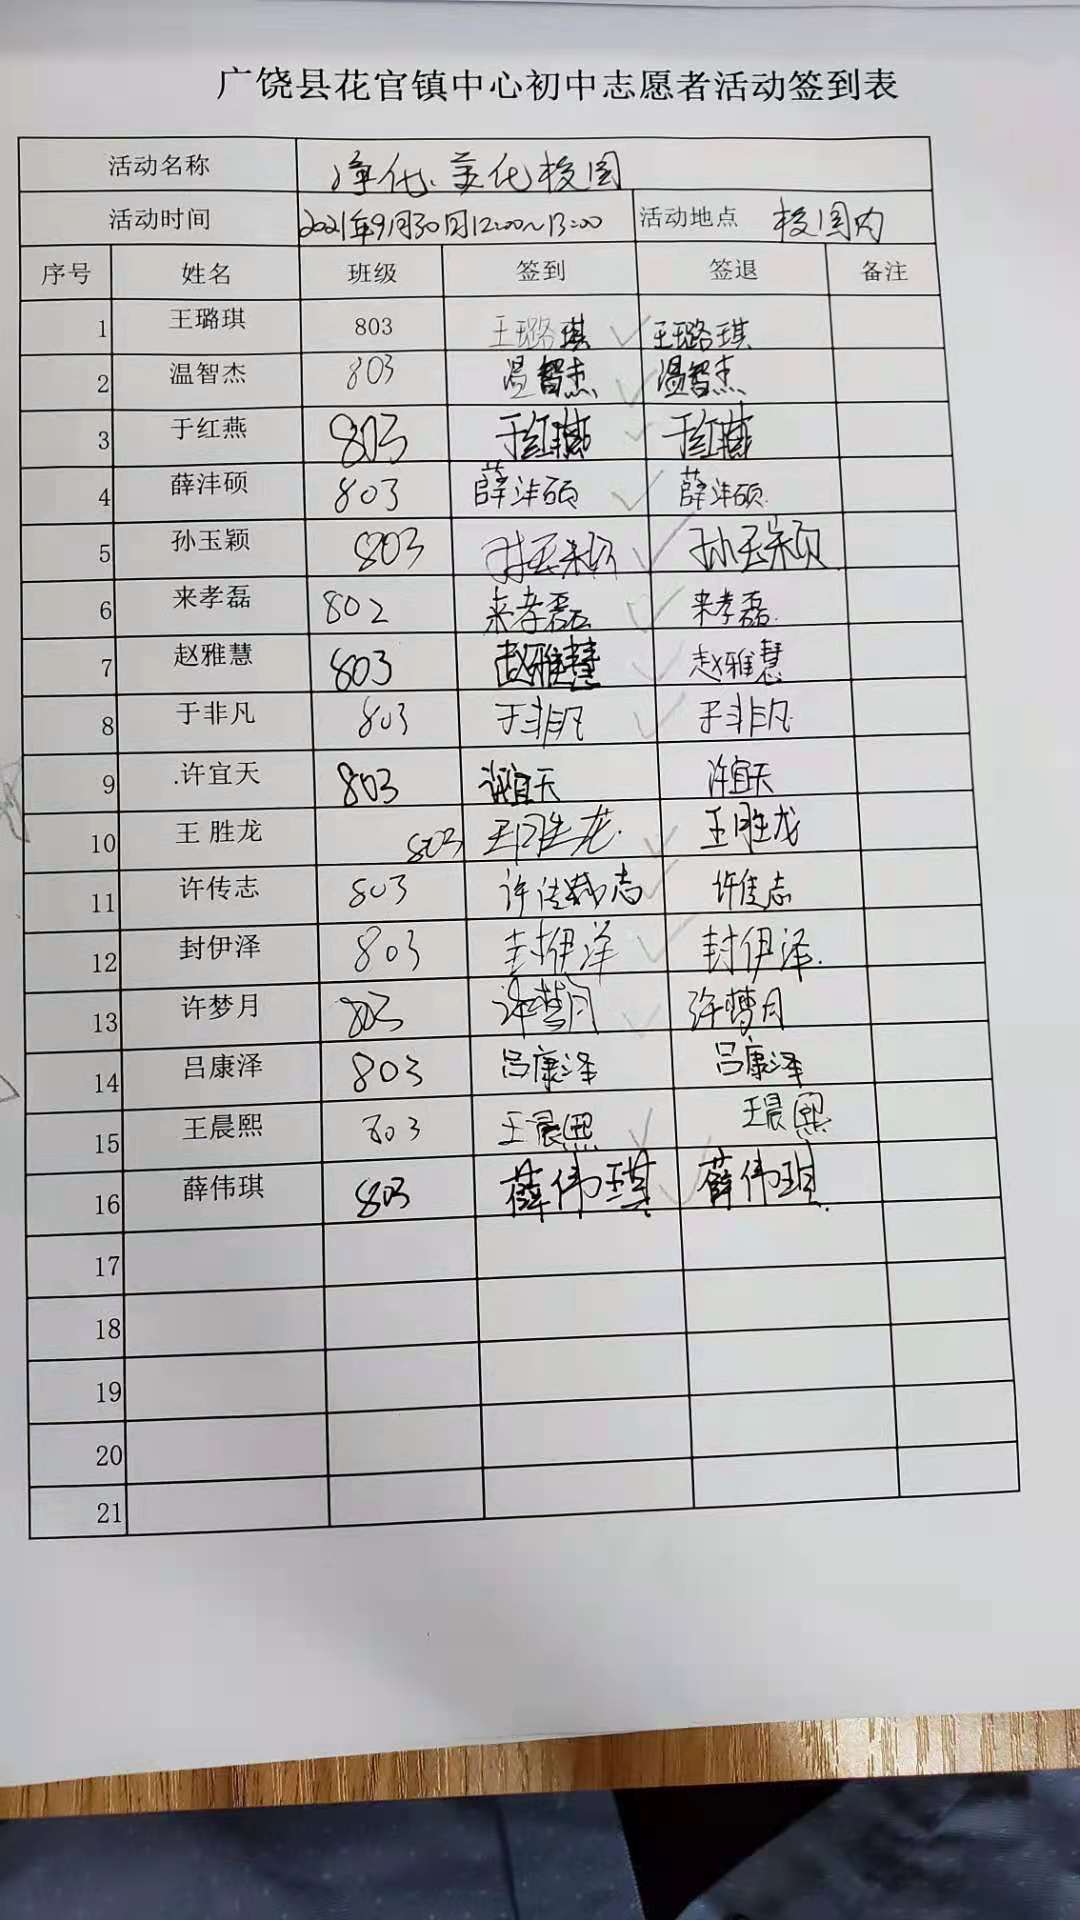 广饶县花官镇中心初中志愿者活动签到表
活动名称 净化、美化校园
活动时间 2021年9月30日12:00~13:00 活动地点 校园内
序号 姓名 班级 签到 签退 备注
1 王璐琪 803 王璐琪 王璐琪
2 温智杰 803 温智杰 温智杰
3 于红燕 803 于红燕 于红燕
4 薛沣硕 803 薛沣硕 薛沣硕
5 孙玉颖 803 孙玉颖 孙玉颖
6 来孝磊 802 来孝磊 来孝磊
7 赵雅慧 803 赵雅慧 赵雅慧
8 于非凡 803 于非凡 于非凡
9 .许宜天 803 许宜天 许宜天
10 王 胜龙 803 王胜龙 王胜龙
11 许传志 803 许传志 许传志
12 封伊泽 803 封伊泽 封伊泽
13 许梦月 803 许梦月 许梦月
14 吕康泽 803 吕康泽 吕康泽
15 王晨熙 803 王晨熙 王晨熙
16 薛伟琪 803 薛伟琪 薛伟琪
17
18
19
20
21